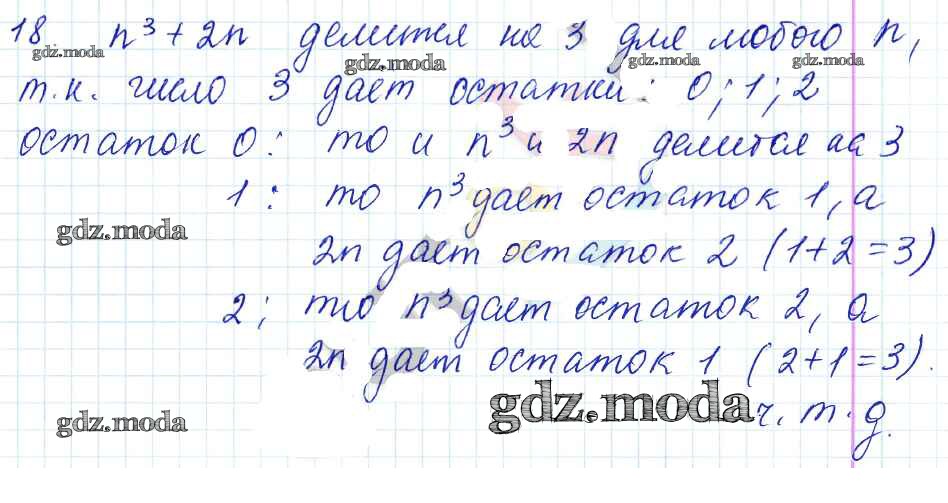 18 n³ + 2n делится на 3 для любого n,
gdz.moda gdz.moda gdz.moda gdz.moda
т.к. число 3 дает остатки: 0; 1; 2
остаток 0: то и n³ и 2n делится на 3
1: то n³ дает остаток 1, а
gdz.moda
2n дает остаток 2 (1+2=3)
2; то n³ дает остаток 2, а
2n дает остаток 1 (2+1=3).
gdz.moda gdz.moda ч. т. д.